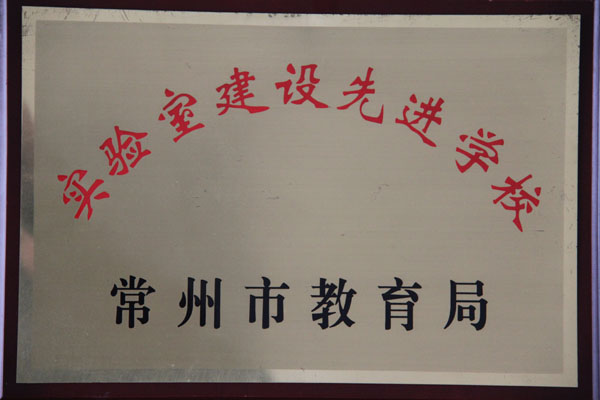 实验室建设先进学校
常州市教育局